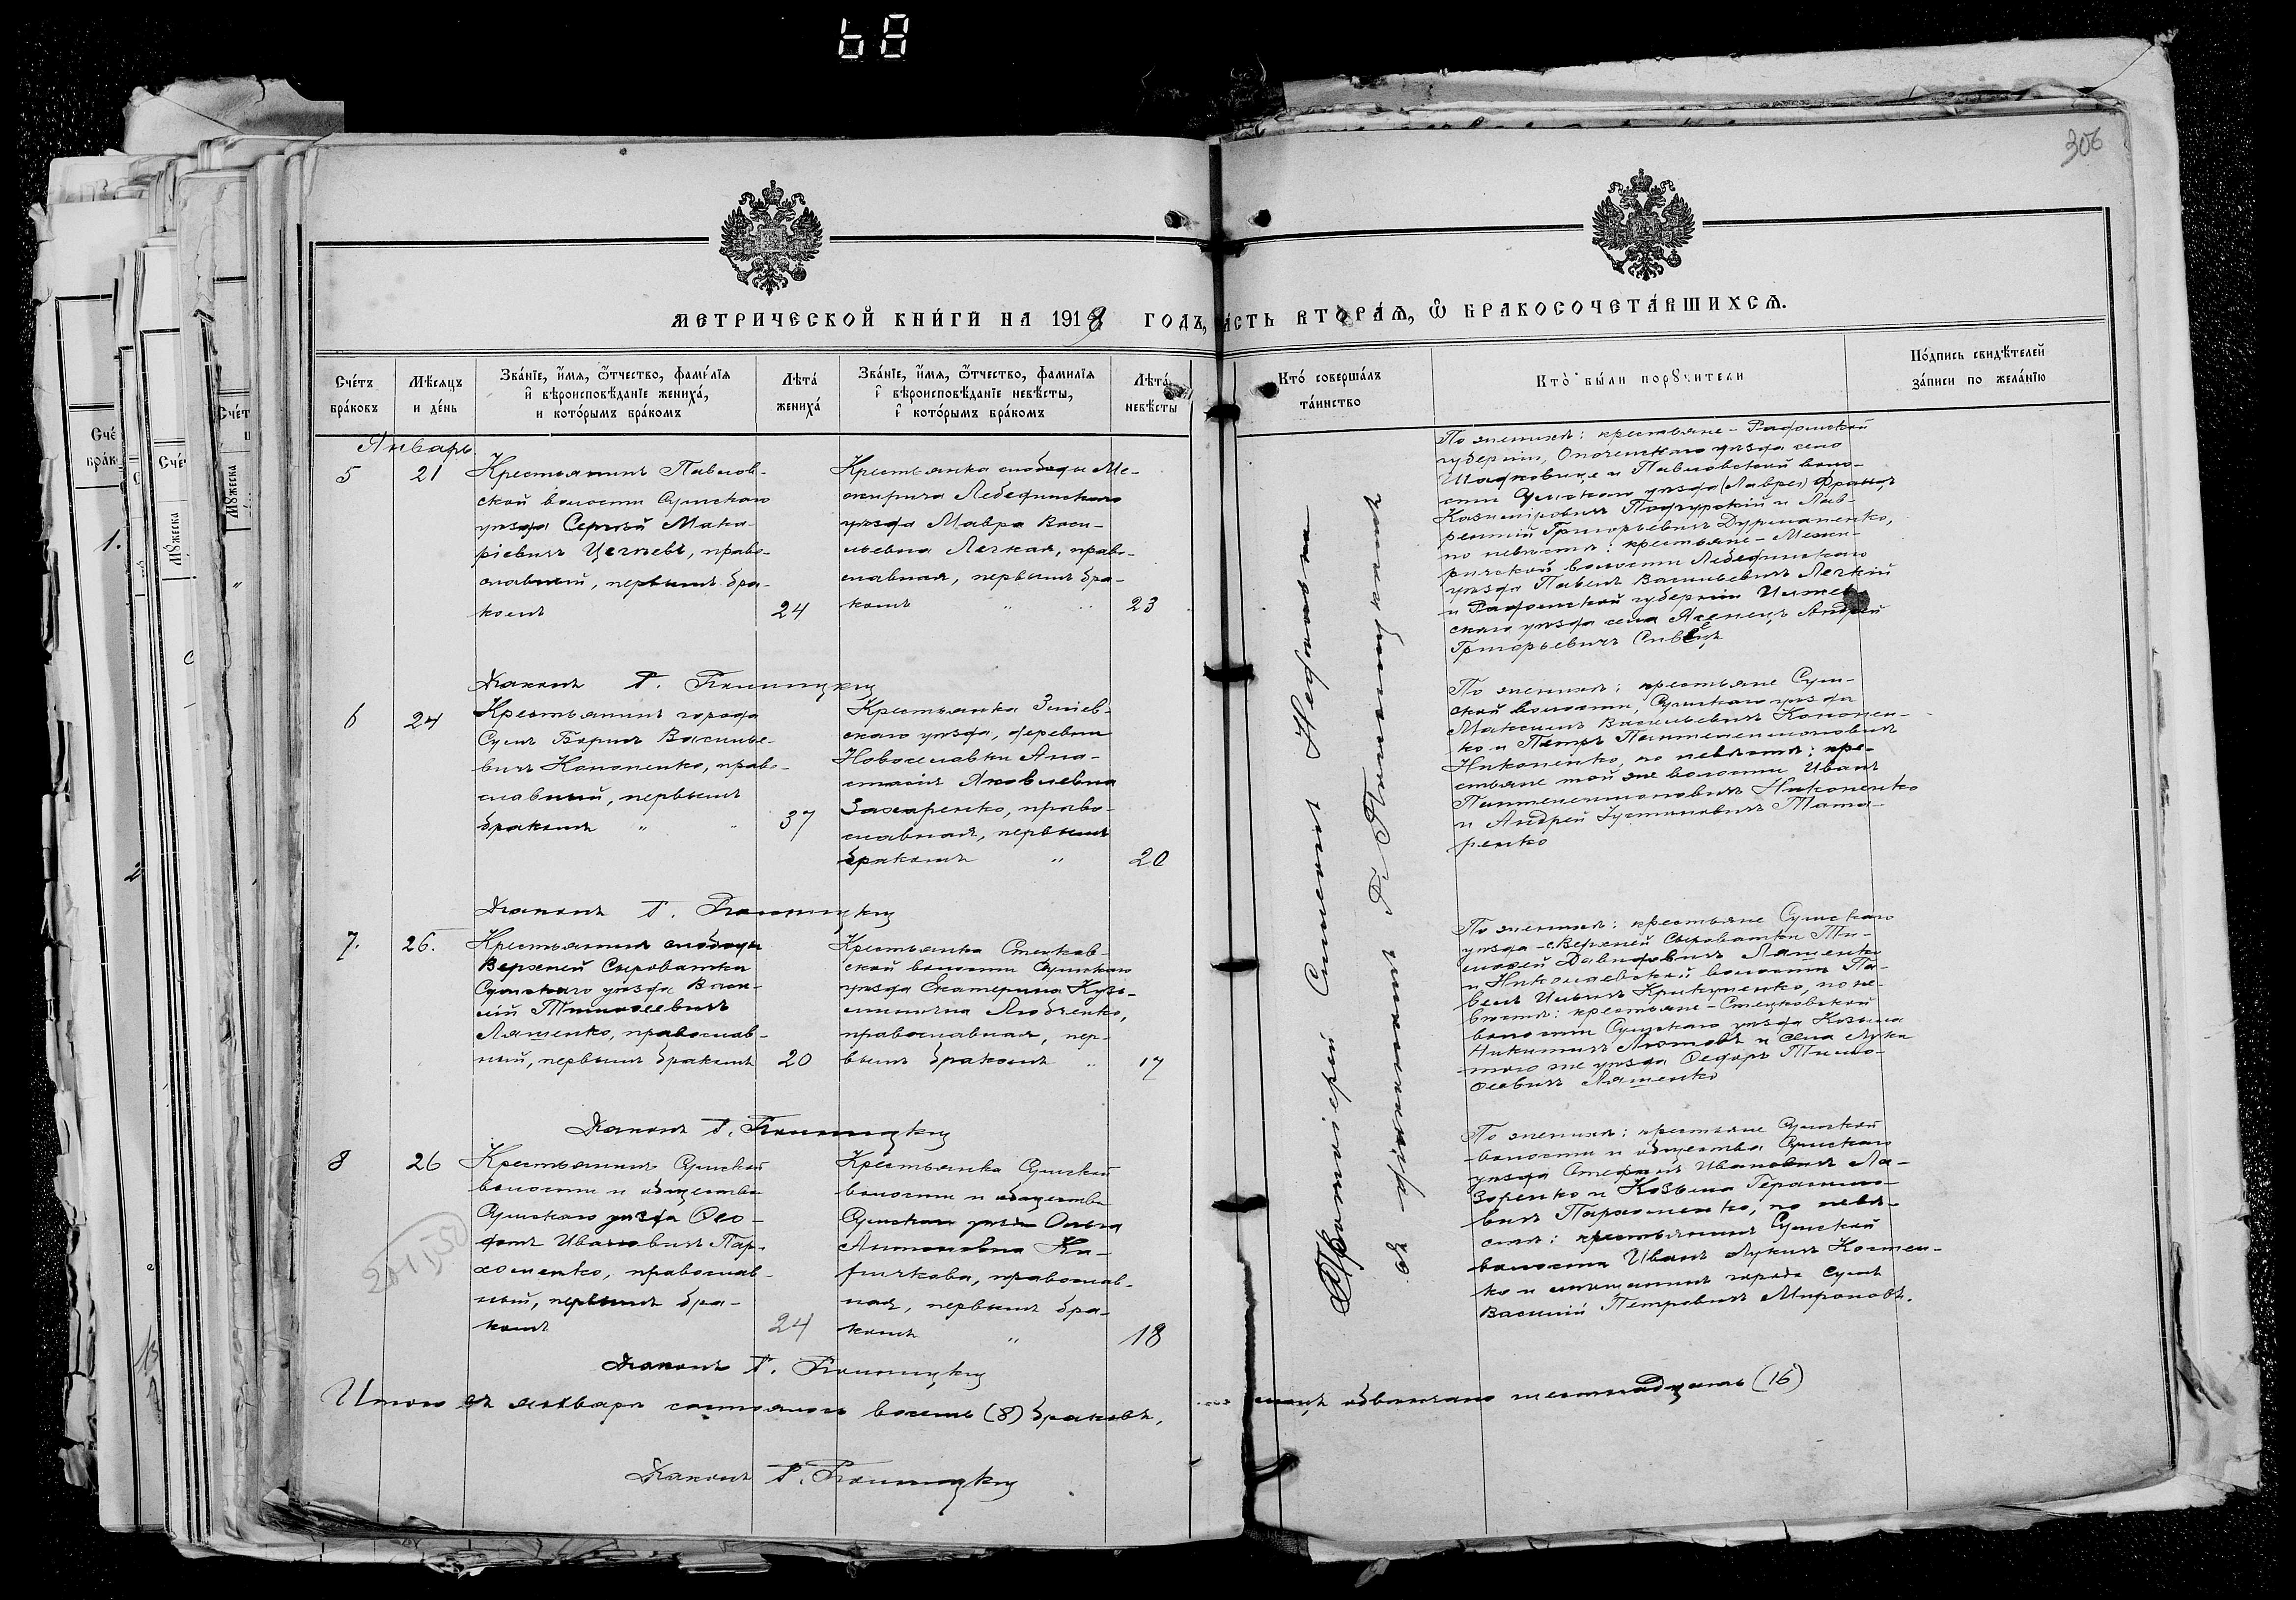 68
306
МЕТРИЧЕСКОЙ КНИ́ГИ НА 1918 ГОДЪ,
ЧА́СТЬ ВТОРА́Ѧ, Ѽ БРАКОСОЧЕТА́ВШИХСѦ.
Сче́тъ бра́ковъ
Мѣ́сяцъ и де́нь
Зва́нїе, и҆́мѧ, ѻ҆́тчество, фамилїѧ и҆ вѣроисповѣ́данїе жениха́, и кото́рымъ бра́комъ
Лѣта́ жениха́
Зва́нїе, и҆́мѧ, ѻ҆́тчество, фамилїѧ и҆ вѣроисповѣ́данїе невѣ́сты, и҆ кото́рымъ бра́комъ
Лѣта́ невѣ́сты
Кто̀ соверша́лъ та́инство
Кто̀ бы́ли порꙋчи́тели
По́дпись свидѣ́телей за́писи по жела́нїю
Январь
5
21
Крестьянинъ Павлов-
ской волости Сумскаго
уѣзда Сергѣй Мака-
ріевичъ Цегневъ, право-
славный, первымъ бра-
комъ
24
Крестьянка слободы Ме-
жирича Лебединскаго
уѣзда Мавра Васи-
льевна Легкая, право-
славная, первымъ бра-
комъ
23
По женихѣ: крестьяне – Радомской
губерніи, Опоченскаго уѣзда село
и Павловской воло-
сти Сумскаго уѣзда (Лавре) Францъ
Казиміровичъ и Лав-
рентій Григорьевичъ Дурманенко,
по невѣстѣ: крестьяне – Межи-
ричской волости Лебединскаго
уѣзда Павелъ Васильевичъ Легкій
и Радомской губерніи
скаго уѣзда села Андрей
Григорьевичъ
Діаконъ Г. Полницкій
6
24
Крестьянинъ города
Сумъ Борисъ Василье-
вичъ Кононенко, право-
славный, первымъ
бракомъ
37
Крестьянка Зміев-
скаго уѣзда, деревни
Новоселавки Ана-
стасія Яковлевна
Захаренко, право-
славная, первымъ
бракомъ
20
По женихѣ: крестьяне Сум-
ской волости, Сумскаго уѣзда
Максимъ Васильевичъ Кононен-
ко и Петръ Пантелеимоновичъ
Никоненко, по невѣстѣ: кре-
стьяне той же волости Иванъ
Пантелеимоновичъ Никоненко
и Андрей Іустиновичъ Тата-
ренко
Діаконъ Г. Полницкій
7.
26.
Крестьянинъ слободы
Верхней Сыроватки
Сумскаго уѣзда Васи-
лій Тимоѳеевичъ
Ляшенко, православ-
ный, первымъ бракомъ
20
Крестьянка Стецков-
ской волости Сумскаго
уѣзда Екатерина Кузь-
минична Любченко,
православная, пер-
вымъ бракомъ
17
По женихѣ: крестьяне Сумскаго
уѣзда – с. Верхней Сыроватки Ти-
моѳей Давидовичъ Ляшенко
и Николаевской волости Па-
велъ Ильичъ Крикуненко, по не-
вѣстѣ: крестьяне – Стецковской
волости Сумскаго уѣзда Козьма
Никитичъ Лютовъ и села Луки
того же уѣзда Ѳедоръ Тимо-
ѳеевичъ Ляшенко
Діаконъ Г. Полницкій
8
26
Крестьянинъ Сумской
волости и общества
Сумскаго уѣзда Ѳео-
фанъ Ивановичъ Пар-
хоменко, православ-
ный, первымъ бра-
комъ
24
Крестьянка Сумской
волости и общества
Сумскаго уѣзда Ольга
Антоновна Ка-
православ-
ная, первымъ бра-
комъ
18
По женихѣ: крестьяне Сумской
волости и общества Сумскаго
уѣзда Стефанъ Ивановичъ Ла-
заренко и Козьма Герасимо-
вичъ Пархоменко, по невѣ-
стѣ: крестьянинъ Сумской
волости Иванъ Лукичъ Костен-
ко и мѣщанинъ города Сумъ
Василій Петровичъ Мироновъ.
Діаконъ Г. Полницкій
Протоіерей Симеонъ
съ діакономъ Г. Полницкимъ
Итого въ январѣ состоялось восемь (8) браковъ,
обвѣнчано шестнадцать (16)
Діаконъ Г. Полницкій